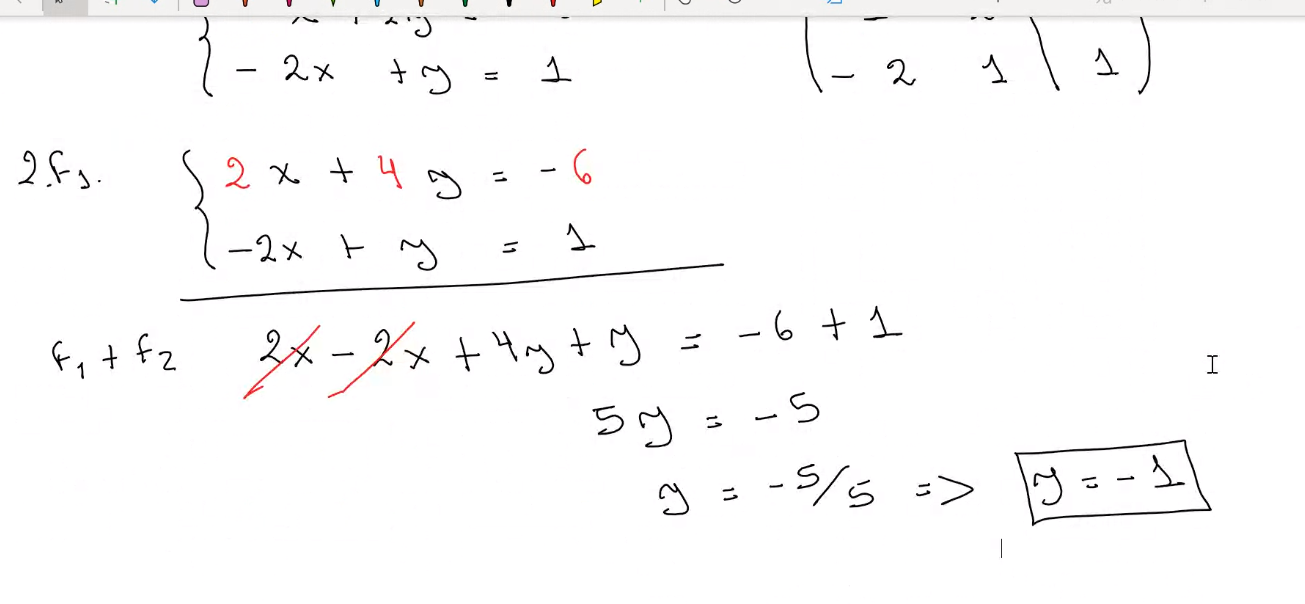 - 2x + y = 1
- 2 1 | 1
2.F1.
2x + 4y = -6
-2x + y = 1
F1 + F2 2x - 2x + 4y + y = -6 + 1
5y = -5
y = -5/5 => y = -1